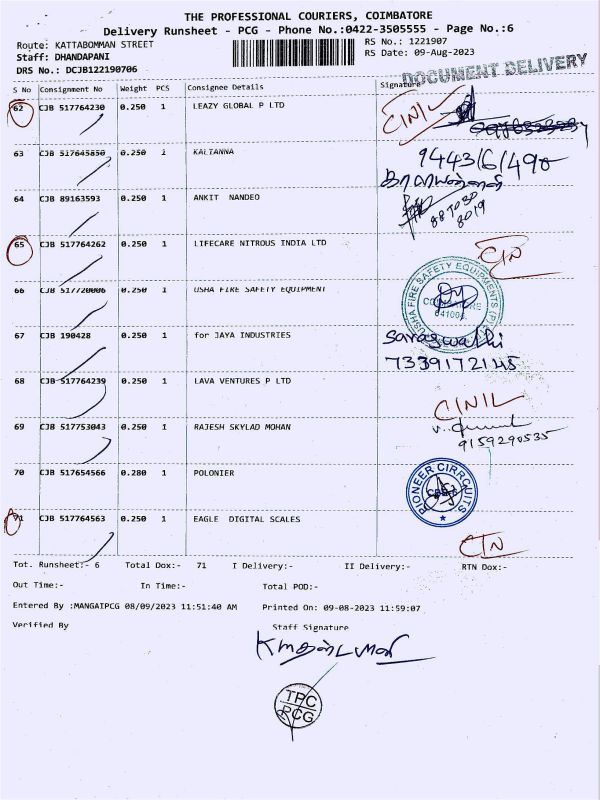 THE PROFESSIONAL COURIERS, COIMBATORE
Delivery Runsheet - PCG - Phone No.:0422-3505555 - Page No.:6
Route: KATTABOMMAN STREET
RS No.: 1221907
Staff: DHANDAPANI
RS Date: 09-Aug-2023
DRS No.: DCJB122190706
DOCUMENT DELIVERY
S No Consignment No Weight PCS Consignee Details Signature
62 CJB 517764230 0.250 1 LEAZY GLOBAL P LTD
63 CJB 517645850 0.250 1 KALTANNA
64 CJB 89163593 0.250 1 ANKIT NANDEO
65 CJB 517764262 0.250 1 LIFECARE NITROUS INDIA LTD
66 CJB 517720006 0.250 1 USHA FIRE SAFETY EQUIPMENT
USHA FIRE SAFETY EQUIPMENTS (P)
67 CJB 190428 0.250 1 for JAYA INDUSTRIES
Saraswathi
7339172145
68 CJB 517764239 0.250 1 LAVA VENTURES P LTD
69 CJB 517753043 0.250 1 RAJESH SKYLAD MOHAN
9159290535
70 CJB 517654566 0.280 1 POLONIER
PIONEER CIRRCUITS
71 CJB 517764563 0.250 1 EAGLE DIGITAL SCALES
Tot. Runsheet:- 6 Total Dox:- 71 I Delivery:- II Delivery:- RTN Dox:-
Out Time:- In Time:- Total POD:-
Entered By :MANGAIPCG 08/09/2023 11:51:40 AM Printed On: 09-08-2023 11:59:07
Verified By Staff Signature
TPC
PCG